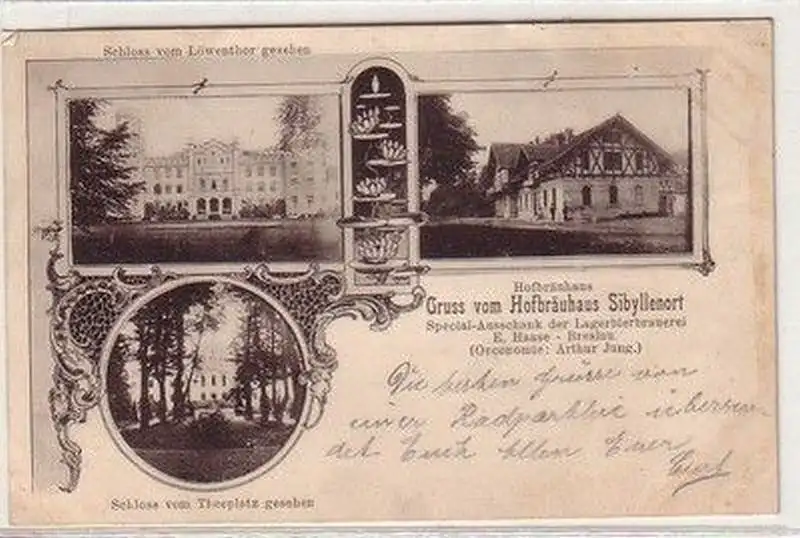 Schloss vom Löwenthor gesehen
Hofbräuhaus
Gruss vom Hofbräuhaus Sibyllenort
Special-Ausschank der Lagerbierbrauerei
E. Haase - Breslau.
(Oeconomie: Arthur Jung.)
Die besten Grüsse von
einer Radparthie übersen
det Euch allen Euer
Schloss vom Theeplatz gesehen